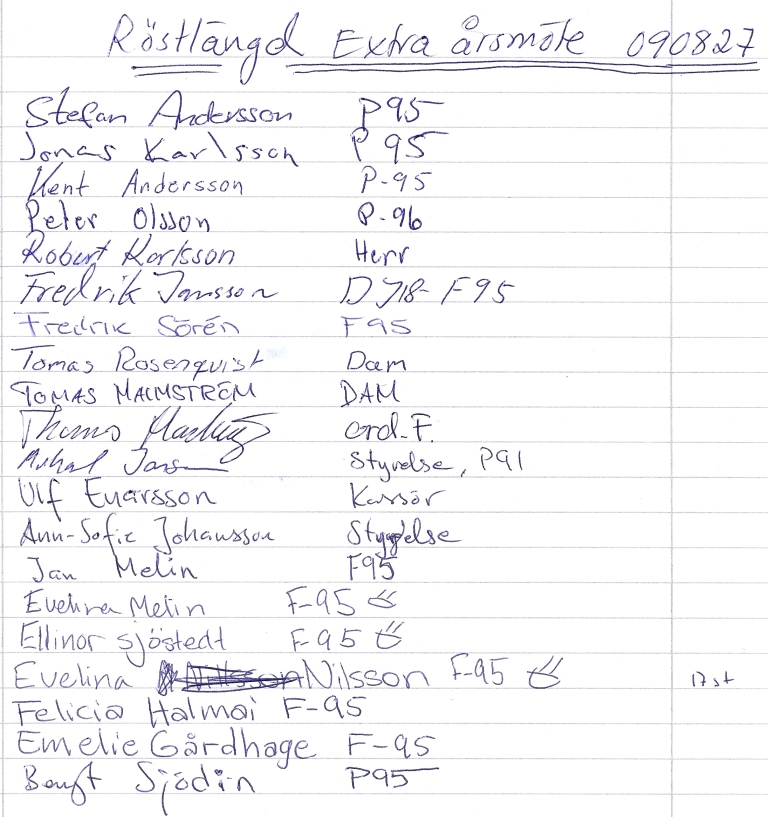 Röstlängd Extra årsmöte 090827
Stefan Andersson P95
Jonas Karlsson P 95
Kent Andersson P-95
Peter Olsson P-96
Robert Karlsson Herr
Fredrik Jansson DJ18- F95
Fredrik Sörén F95
Tomas Rosenquist Dam
TOMAS MALMSTRÖM DAM
Thomas ord.F.
Mikael Styrelse, P91
Ulf Einarsson Kassör
Ann-Sofie Johansson Styrelse
Jan Melin F95
Evelina Melin F-95
Ellinor sjöstedt F-95
Evelina Nilsson F-95 17 st
Felicia Halmai F-95
Emelie Gårdhage F-95
Bengt Sjödin P95